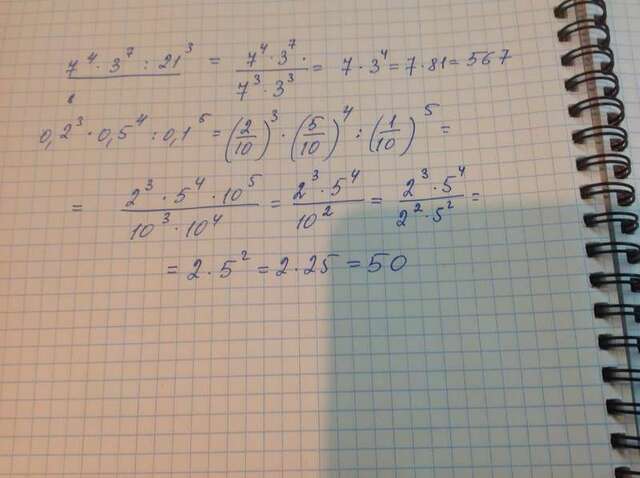 7⁴ · 3⁷ : 21³ = 7⁴ · 3⁷ · / 7³ · 3³ = 7 · 3⁴ = 7 · 81 = 567
0,2³ · 0,5⁴ : 0,1⁵ = (2/10)³ · (5/10)⁴ : (1/10)⁵ =
= 2³ · 5⁴ · 10⁵ / 10³ · 10⁴ = 2³ · 5⁴ / 10² = 2³ · 5⁴ / 2² · 5² =
= 2 · 5² = 2 · 25 = 50